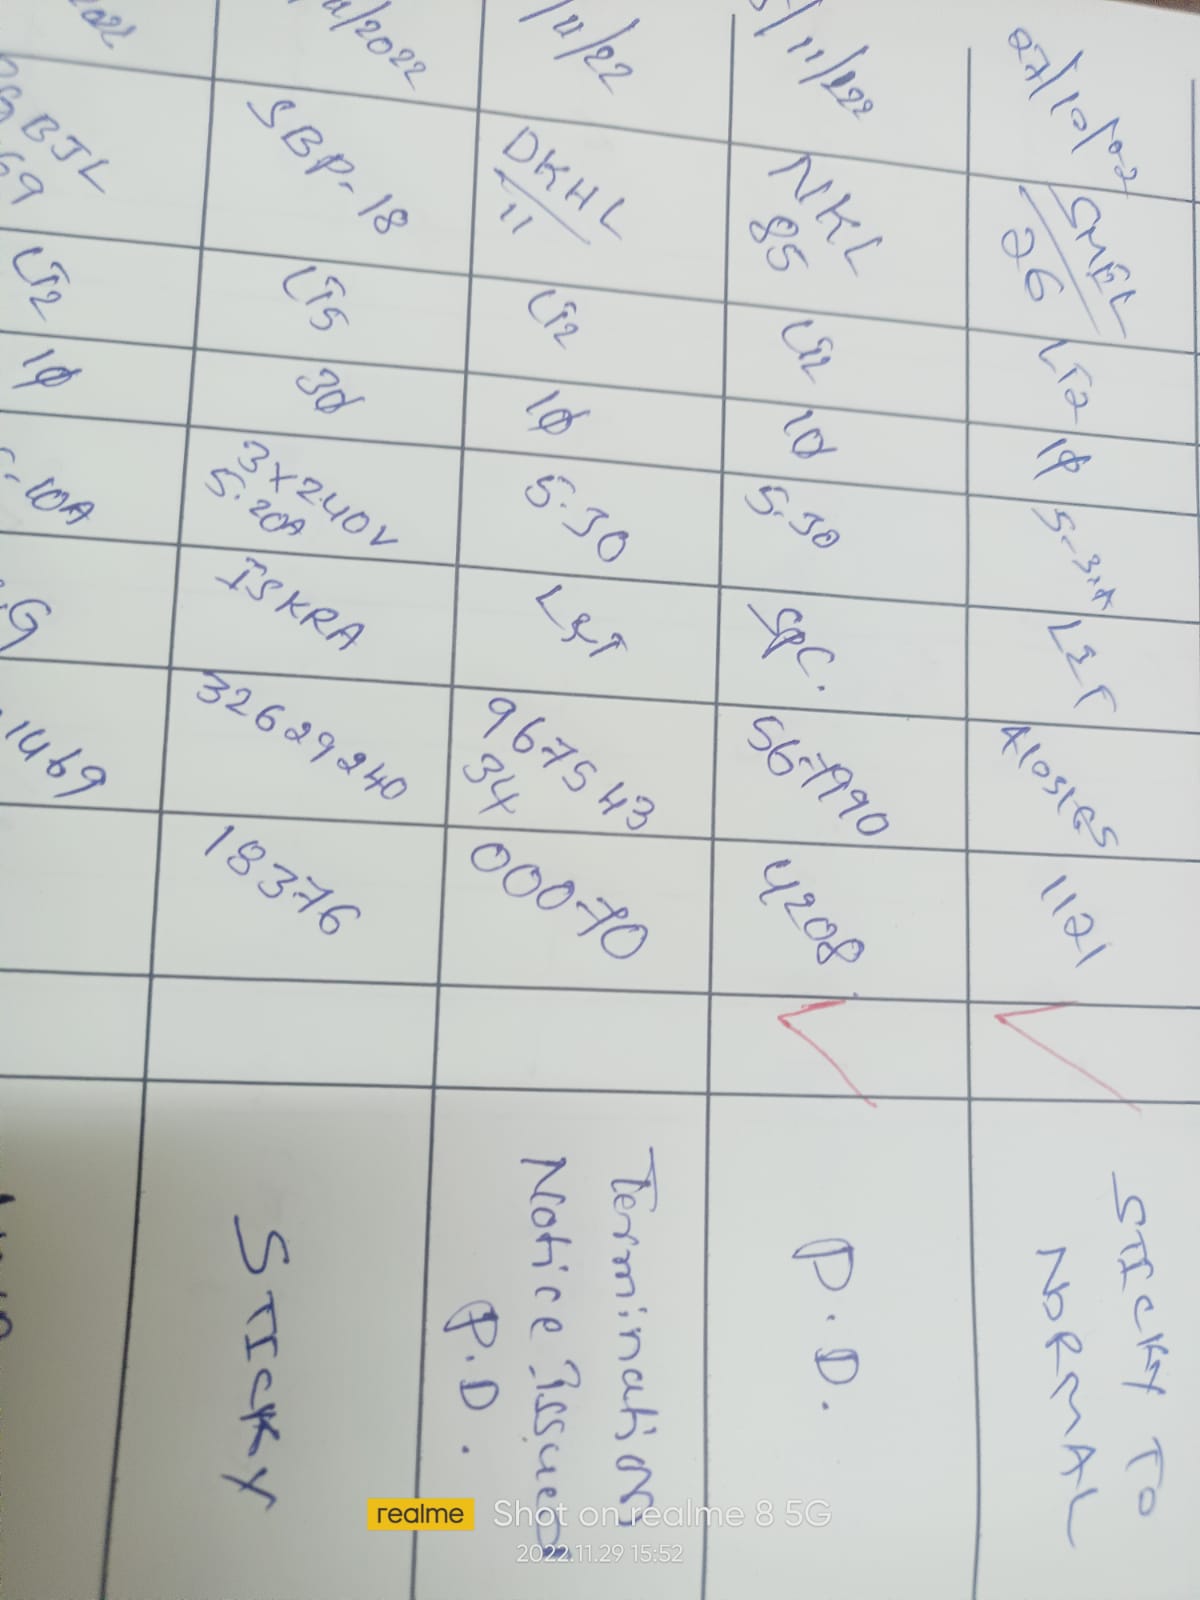 27/10/22
SMEL
26
LT2
1φ
LET
1121
STICKY TO
NORMAL
11/22
NKL
85
LT2
1φ
5-30
SPC.
567990
4208
P.D.
/11/22
DKHL
11
LT2
1φ
5-30
L&T
967543
34
00070
Termination
Notice Issued
P.D.
11/2022
SBP-18
LT5
3φ
3X240V
5-20A
ISKRA
32629240
18376
STICKY
LT2
1φ
-10A
G
1469
realme
Shot on realme 8 5G
2022.11.29 15:52